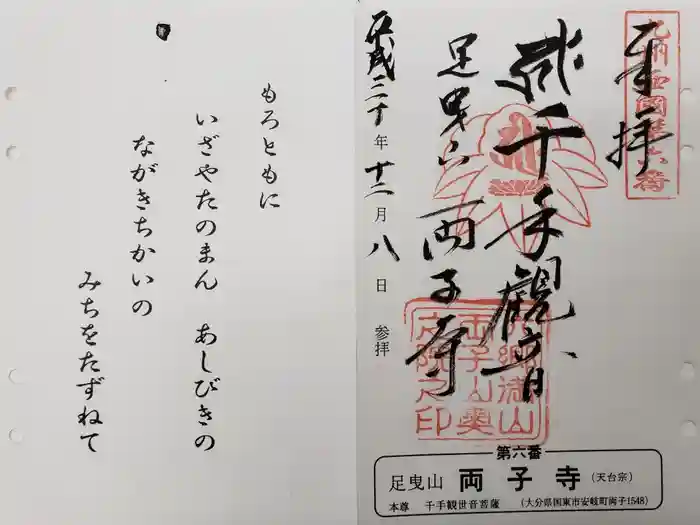 奉拝
千手観音
足曳山
両子寺
平成三十年十二月八日参拝
第六番
足曳山 両子寺 (天台宗)
本尊 千手観世音菩薩 (大分県国東市安岐町両子1548)
もろともに
いざやたのまん あしびきの
ながきちかいの
みちをたずねて